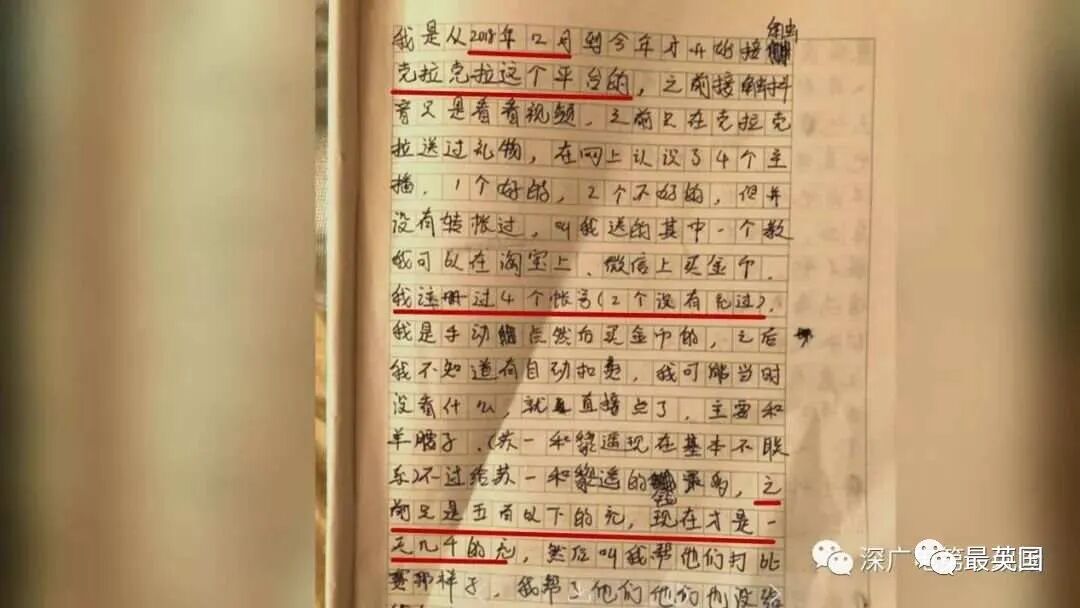 我是从2018年12月到今年才开始接触
克拉克拉这个平台的，之前接触抖
音只是看看视频，之前只在克拉克
拉送过礼物，在网上认识了4个主
播，1个好的，2个不好的，但并
没有转帐过，叫我送的其中一个教
我可以在淘宝上、微信上买金币，
我注册过4个帐号(2个没有充过)，
我是手动点然后买金币的，之后
我不知道有自动扣费，我可能当时
没看什么，就直接点了，主要和
羊腰子、(苏一和黎遥现在基本不联
系)不过给苏一和黎遥的最多，之
前只是五百以下的充，现在才是一
天几千的充，然后叫我帮他们打比
赛那样子，我帮了他们他们也没给
深广
第最英国